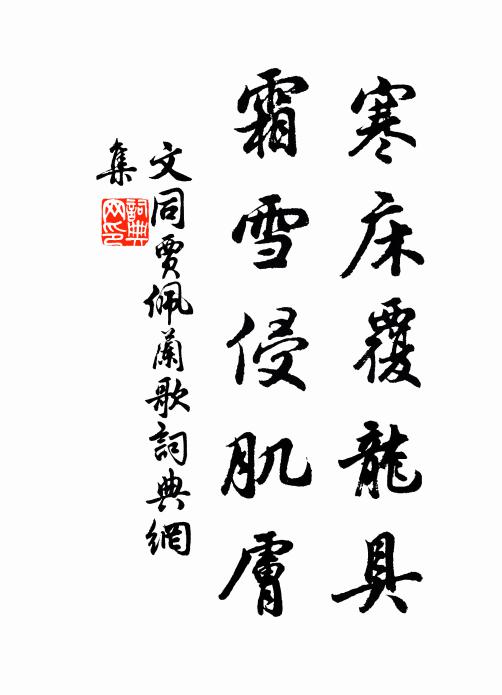 寒床覆龍具
霜雪侵肌膚
文同賈佩蘭歌詞典網
集
詞典網印